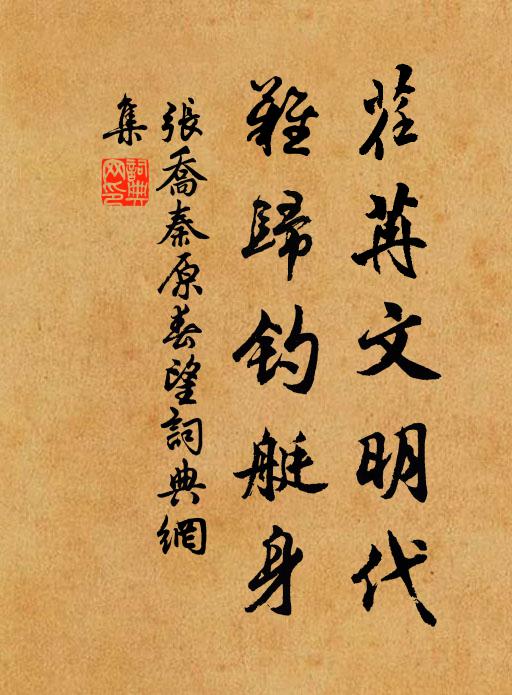 荏苒文明代
難歸釣艇身
張喬秦原春望詞典網
集
詞典網印